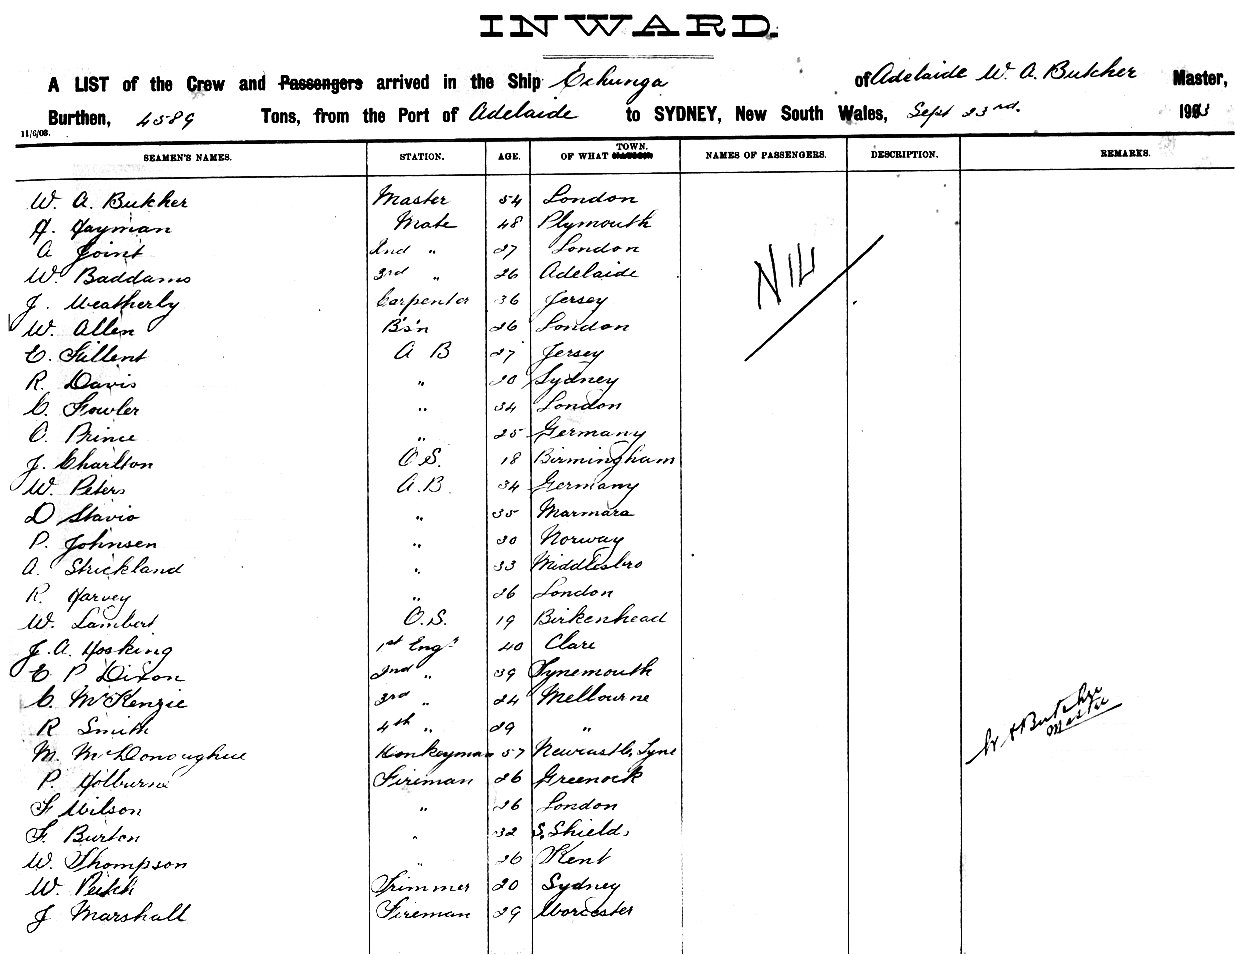 INWARD.
A LIST of the Crew and Passengers arrived in the Ship Echunga of Adelaide W. A. Butcher Master,
Burthen, 4589 Tons, from the Port of Adelaide to SYDNEY, New South Wales, Sept 23rd. 19
11/6/08.
SEAMEN'S NAMES. STATION. AGE. OF WHAT TOWN. NAMES OF PASSENGERS. DESCRIPTION. REMARKS.
W. A. Butcher Master 54 London
H. Hayman Mate 48 Plymouth
A Joint 2nd " 27 London
W. Baddams 3rd " 26 Adelaide
NIL
J. Weatherly Carpenter 36 Jersey
W. Allen B's'n 26 London
E. Fillent A B 27 Jersey
R. Davis " 20 Sydney
C. Fowler " 34 London
O. Prince " 25 Germany
J. Charlton O.S. 18 Birmingham
W. Peters A.B. 34 Germany
D Stavio " 35 Marmara
P. Johnsen " 30 Norway
A. Strickland " 33 Middlesbro
R. Harvey " 26 London
W. Lambert O.S. 19 Birkenhead
J. A. Hosking 1st Engr 40 Clare
E. P Dixon 2nd " 39 Tynemouth
C. McKenzie 3rd " 24 Melbourne
R Smith 4th " 29 "
W A Butcher
Master
M. McDonoughue Donkeyman 57 Newcastle, Tyne
P. Holburne Fireman 26 Greenock
F Wilson " 26 London
F. Burton " 32 S. Shields
W. Thompson " 26 Kent
W. Veitch Trimmer 20 Sydney
J Marshall Fireman 29 Worcester